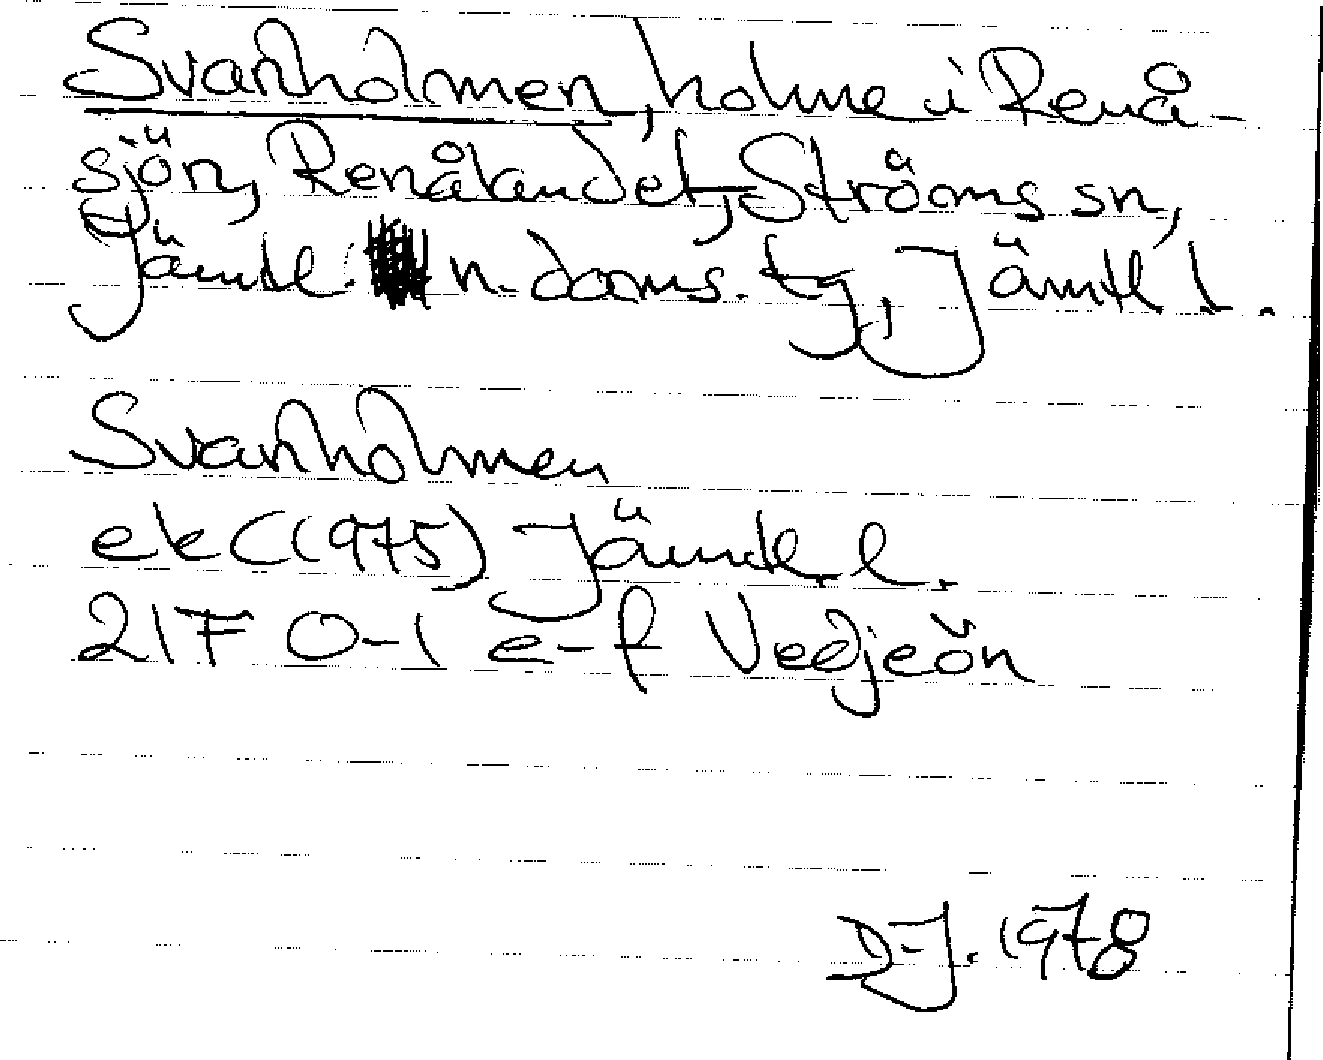 Svanholmen, holme i Renå-
sjön, Renålandet, Ströms sn,
Jämtl. n. doms. tg, Jämtl l.
Svanholmen
ek (1975) Jämtl. l.
21F 0-1 e-f Vedjeön
D-J. 1978